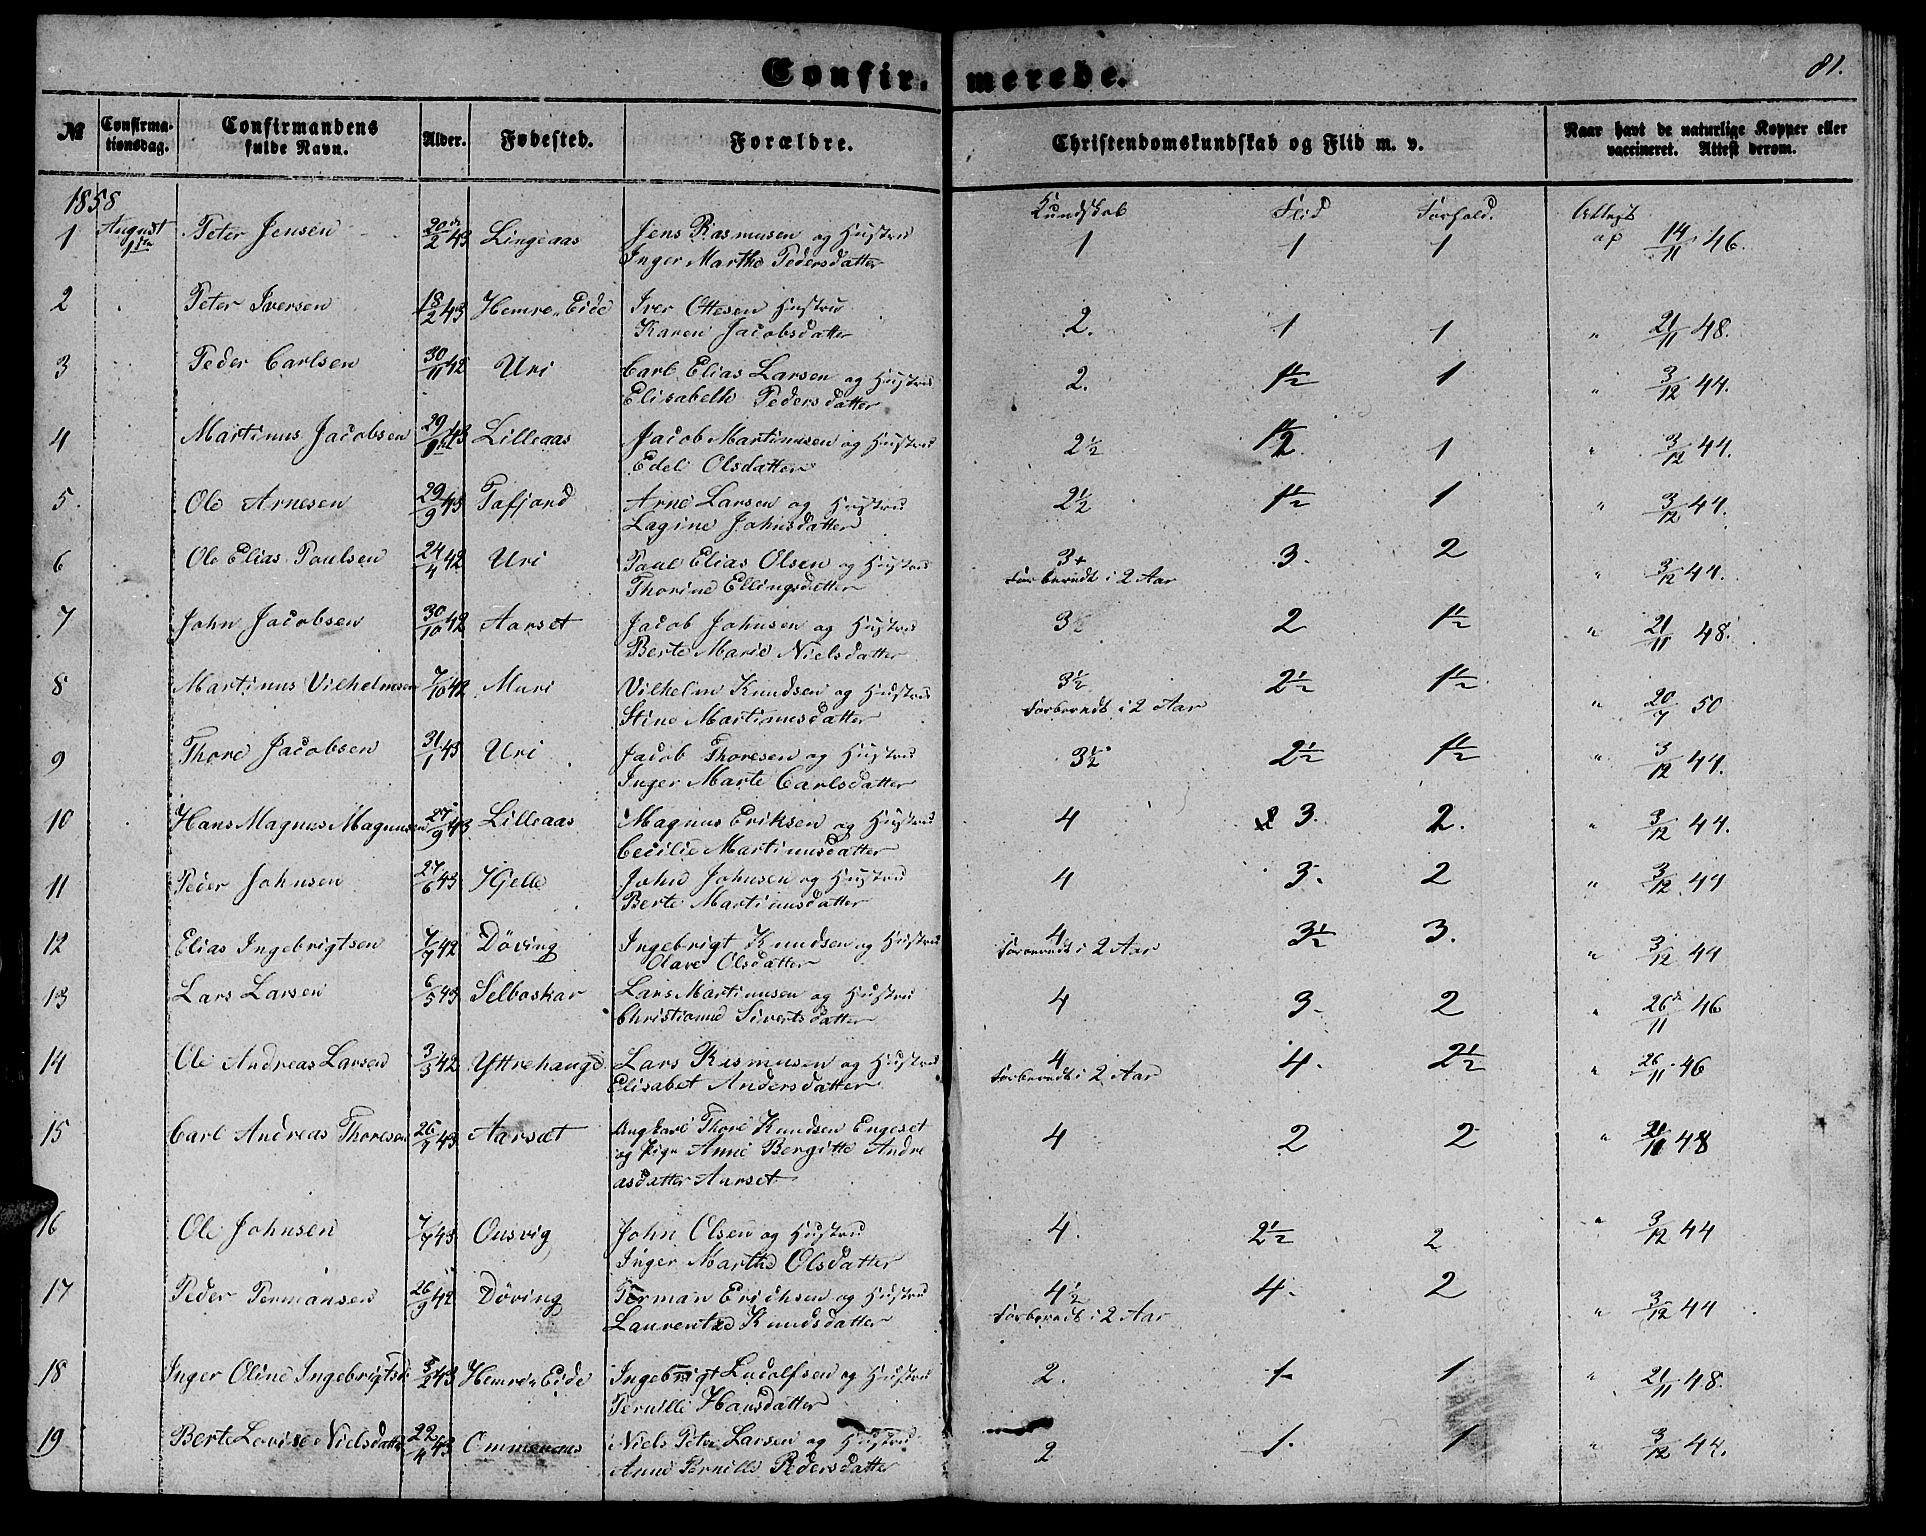 Confir- merede. 81.
№ Confirma-tionsdag. Confirmandens fulde Navn. Alder. Fødested. Forældre. Christendomskundskab og Flid m. v. Naar havt de naturlige Kopper eller vaccineret. Attest derom.
1858 Kundskab Flid Forhold. Attest
1 August 1ste Peter Jensen 20/2 43 Lingeaas Jens Rasmusen og Hustru 1 1 1 af 14/11 46.
Inger Marthe Pedersdatter
2 Peter Iversen 18/2 43 Hemre Eide Iver Ottesen Hustru 2. 1 1 " 21/11 48.
Karen Jacobsdatter
3 Peder Carlsen 30/11 42 Uri Carl Elias Larsen og Hustru 2. 1½ 1 " 3/12 44.
Elisabeth Pedersdatter
4 Martinus Jacobsen 29/9 43 Lilleaas Jacob Martinusen og Hustru 2½ 1½ 1 " 3/12 44.
Edel Olsdatter
5. Ole Arnesen 29/9 43 Tafjord Arne Larsen og Hustru 2½ 1½ 1 " 3/12 44.
Lagine Johnsdatter
6 Ole Elias Paulsen 24/4 42 Uri Paul Elias Olsen og Hustru 3+ 3. 2 " 3/12 44.
Thorine Ellingsdatter Forberedt i 2 Aar
7 John Jacobsen 30/10 42 Aarset Jacob Johnsen og Hustru 3½ 2 1½ " 21/11 48.
Berte Marie Nielsdatter
8 Martinus Vilhelmsen 7/10 42 Muri Vilhelm Knudsen og Hustru 3½ 2½ 1½ " 20/7 50
Stine Martinusdatter Forberedt i 2 Aar
9 Thore Jacobsen 31/1 43 Uri Jacob Thoresen og Hustru 3½ 2½ 1½ " 3/12 44.
Inger Marte Carlsdatter
10 Hans Magnus Magnusen 27/9 43 Lilleaas Magnus Eriksen og Hustru 4 3. 2. " 3/12 44.
Cecilie Martinusdatter
11 Peder Johnsen 27/6 43 Hjelle John Johnsen og Hustru 4 3. 2 " 3/12 44
Berte Martinusdatter
12 Elias Ingebrigtsen 7/7 42 Döving Ingebrigt Knudsen og Hustru 4 3½ 3. " 3/12 44
Olave Olsdatter Forberedt i 2 Aar
13 Lars Larsen 6/5 43 Selboskar Lars Martinusen og Hustru 4 3. 2 " 26/11 46
Christianne Sivertsdatter
14 Ole Andreas Larsen 3/3 42 Yttrehauge Lars Rasmusen og Hustru 4 4. 2½ " 26/11 46
Elisabet Andersdatter Forberedt i 2 Aar
15 Carl Andreas Thoresen 26/7 43 Aarsæt Ungkarl Thore Knudsen Engeset 4 2 2 " 21/11 48
og Pige Anne Bergitte Andre
asdatter Aarset
16 Ole Johnsen 7/7 43 Onsvig John Olsen og Hustru 4. 2½ 2 " 3/12 44
Inger Marthe Olsdatter
17 Peder Permansen 26/9 42 Döving Perman Erichsen og Hustru 4½ 4. 2 " 3/12 44
Laurentze Knudsdatter Forberedt i 2 Aar
18 Inger Oline Ingebrigtsd. 3/2 43 Hemre Eide Ingebrigt Ludolfsen og Hustru 2. 1 1 " 21/11 48.
Pernille Hansdatter
19 Berte Lovise Nielsdatter 22/4 43 Ommenaas Niels Peter Larsen og Hustru 2 1. 1 " 3/12 44.
Anne Pernille Pedersdatter